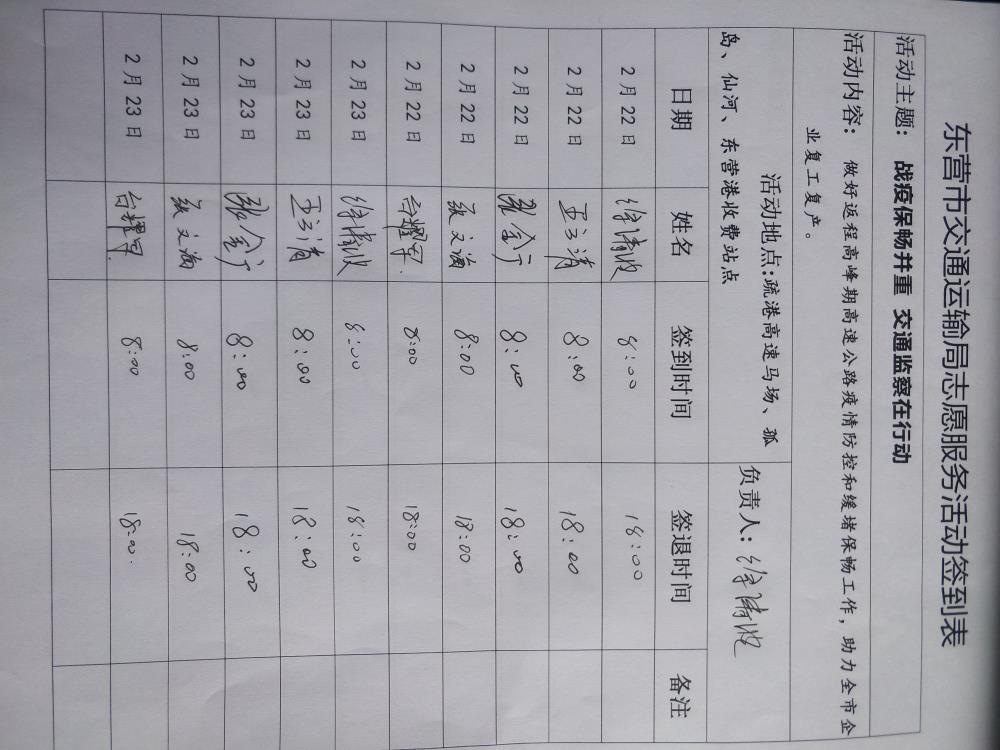 东营市交通运输局志愿服务活动签到表
活动主题： 战疫保畅并重 交通监察在行动
活动内容： 做好返程高峰期高速公路疫情防控和缓堵保畅工作，助力全市企
业复工复产。
活动地点:疏港高速马场、孤
岛、仙河、东营港收费站点
负责人：徐清波
日期 姓名 签到时间 签退时间 备注
2月22日 徐清波 8:00 18:00
2月22日 8:00 18:00
2月22日 8:00 18:00
2月22日 8:00 18:00
2月22日 8:00 18:00
2月23日 徐清波 8:00 18:00
2月23日 8:00 18:00
2月23日 8:00 18:00
2月23日 8:00 18:00
2月23日 8:00 18:00